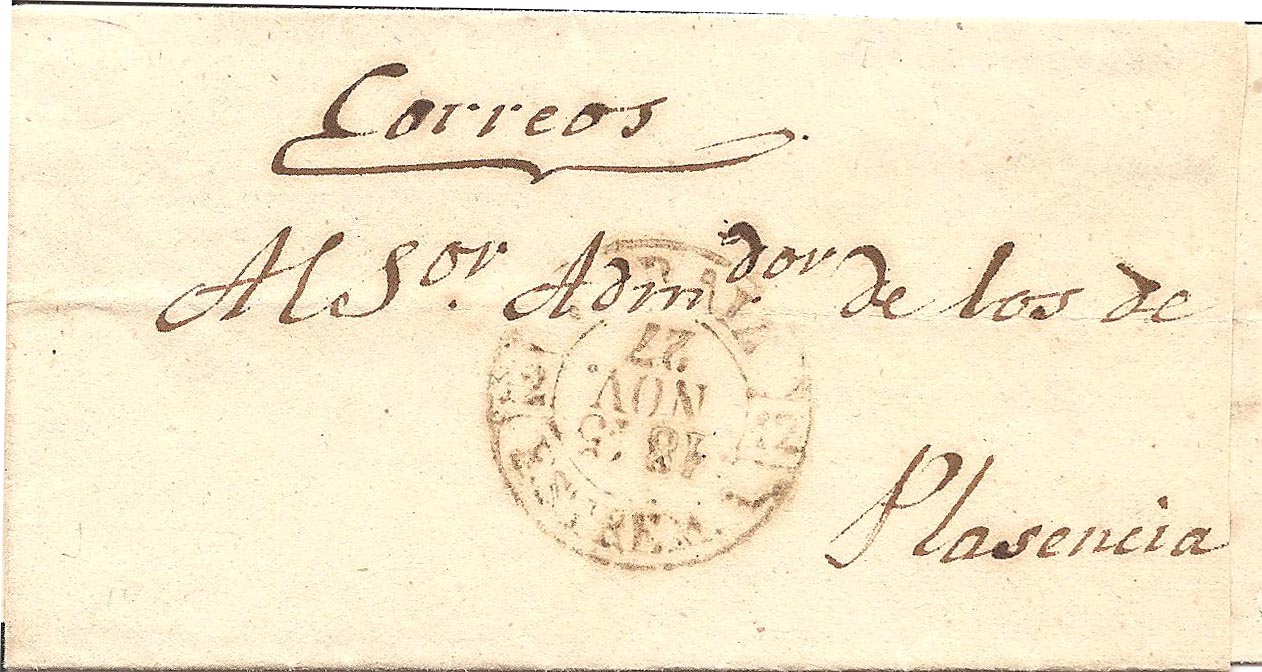 Correos
Al S.or Adm.dor de los de
Plasencia
27
NOV.
ESTREM.